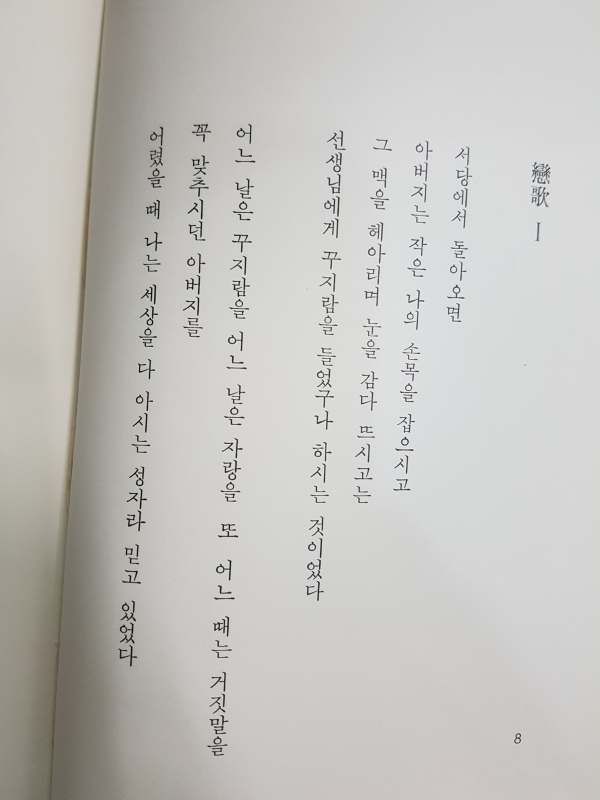 戀歌 Ⅰ
서당에서 돌아오면
아버지는 작은 나의 손목을 잡으시고
그 맥을 헤아리며 눈을 감다 뜨시고는
선생님에게 꾸지람을 들었구나 하시는 것이었다
어느 날은 꾸지람을 어느 날은 자랑을 또 어느 때는 거짓말을
꼭 맞추시던 아버지를
어렸을 때 나는 세상을 다 아시는 성자라 믿고 있었다
8